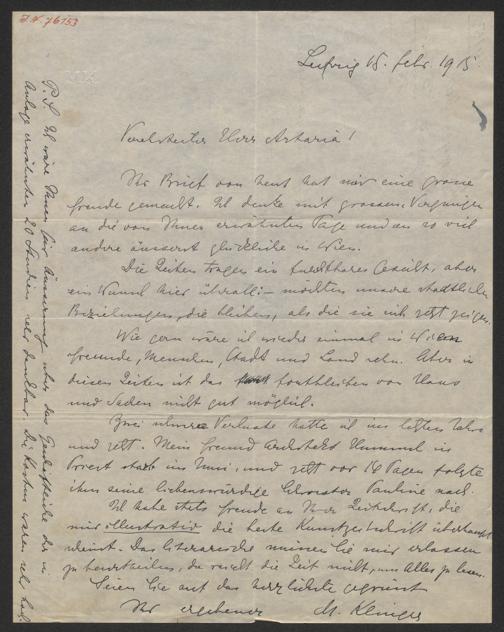 J.N. 76153
Leipzig 15. Febr. 1915
Verehrtester Herr Artaria!
Ihr Brief von heut hat mir eine grosse
Freude gemacht. Ich denke mit grossem Vergnügen
an die von Ihnen erwähnten Tage und an so viel
andere äusserst glückliche in Wien.
Die Zeiten tragen ein furchtbares Gesicht, aber
ein Wunsch hier überall: – möchten unsere staatlichen
Beziehungen die bleiben, als die sie sich jetzt zeigen.
Wie gern wäre ich wieder einmal in Wien
Freunde, Menschen, Stadt und Land sehn. Aber in
diesen Zeiten ist das fortbleiben von Haus
und Sachen nicht gut möglich.
Zwei schwere Verluste hatte ich im letzten Jahre
und jetzt. Mein Freund Architekt Hummel in
Triest starb im Juni, und jetzt vor 14 Tagen folgte
ihm seine liebenswürdige Schwester Pauline nach.
Ich habe stets Freude an Ihrer Zeitschrift, die
mir illustrativ die beste Kunstzeitschrift überhaupt
scheint. Das literarische müssen Sie mir erlassen
zu beurteilen, da reicht die Zeit nicht, um Alles zu lesen.
Seien Sie auf das herzlichste gegrüsst
Ihr ergebener M. Klinger
P.S. Ich wäre Ihnen für Äusserung über das der in
Anlage erwähnten 20 Studien sehr dankbar. Die Kosten